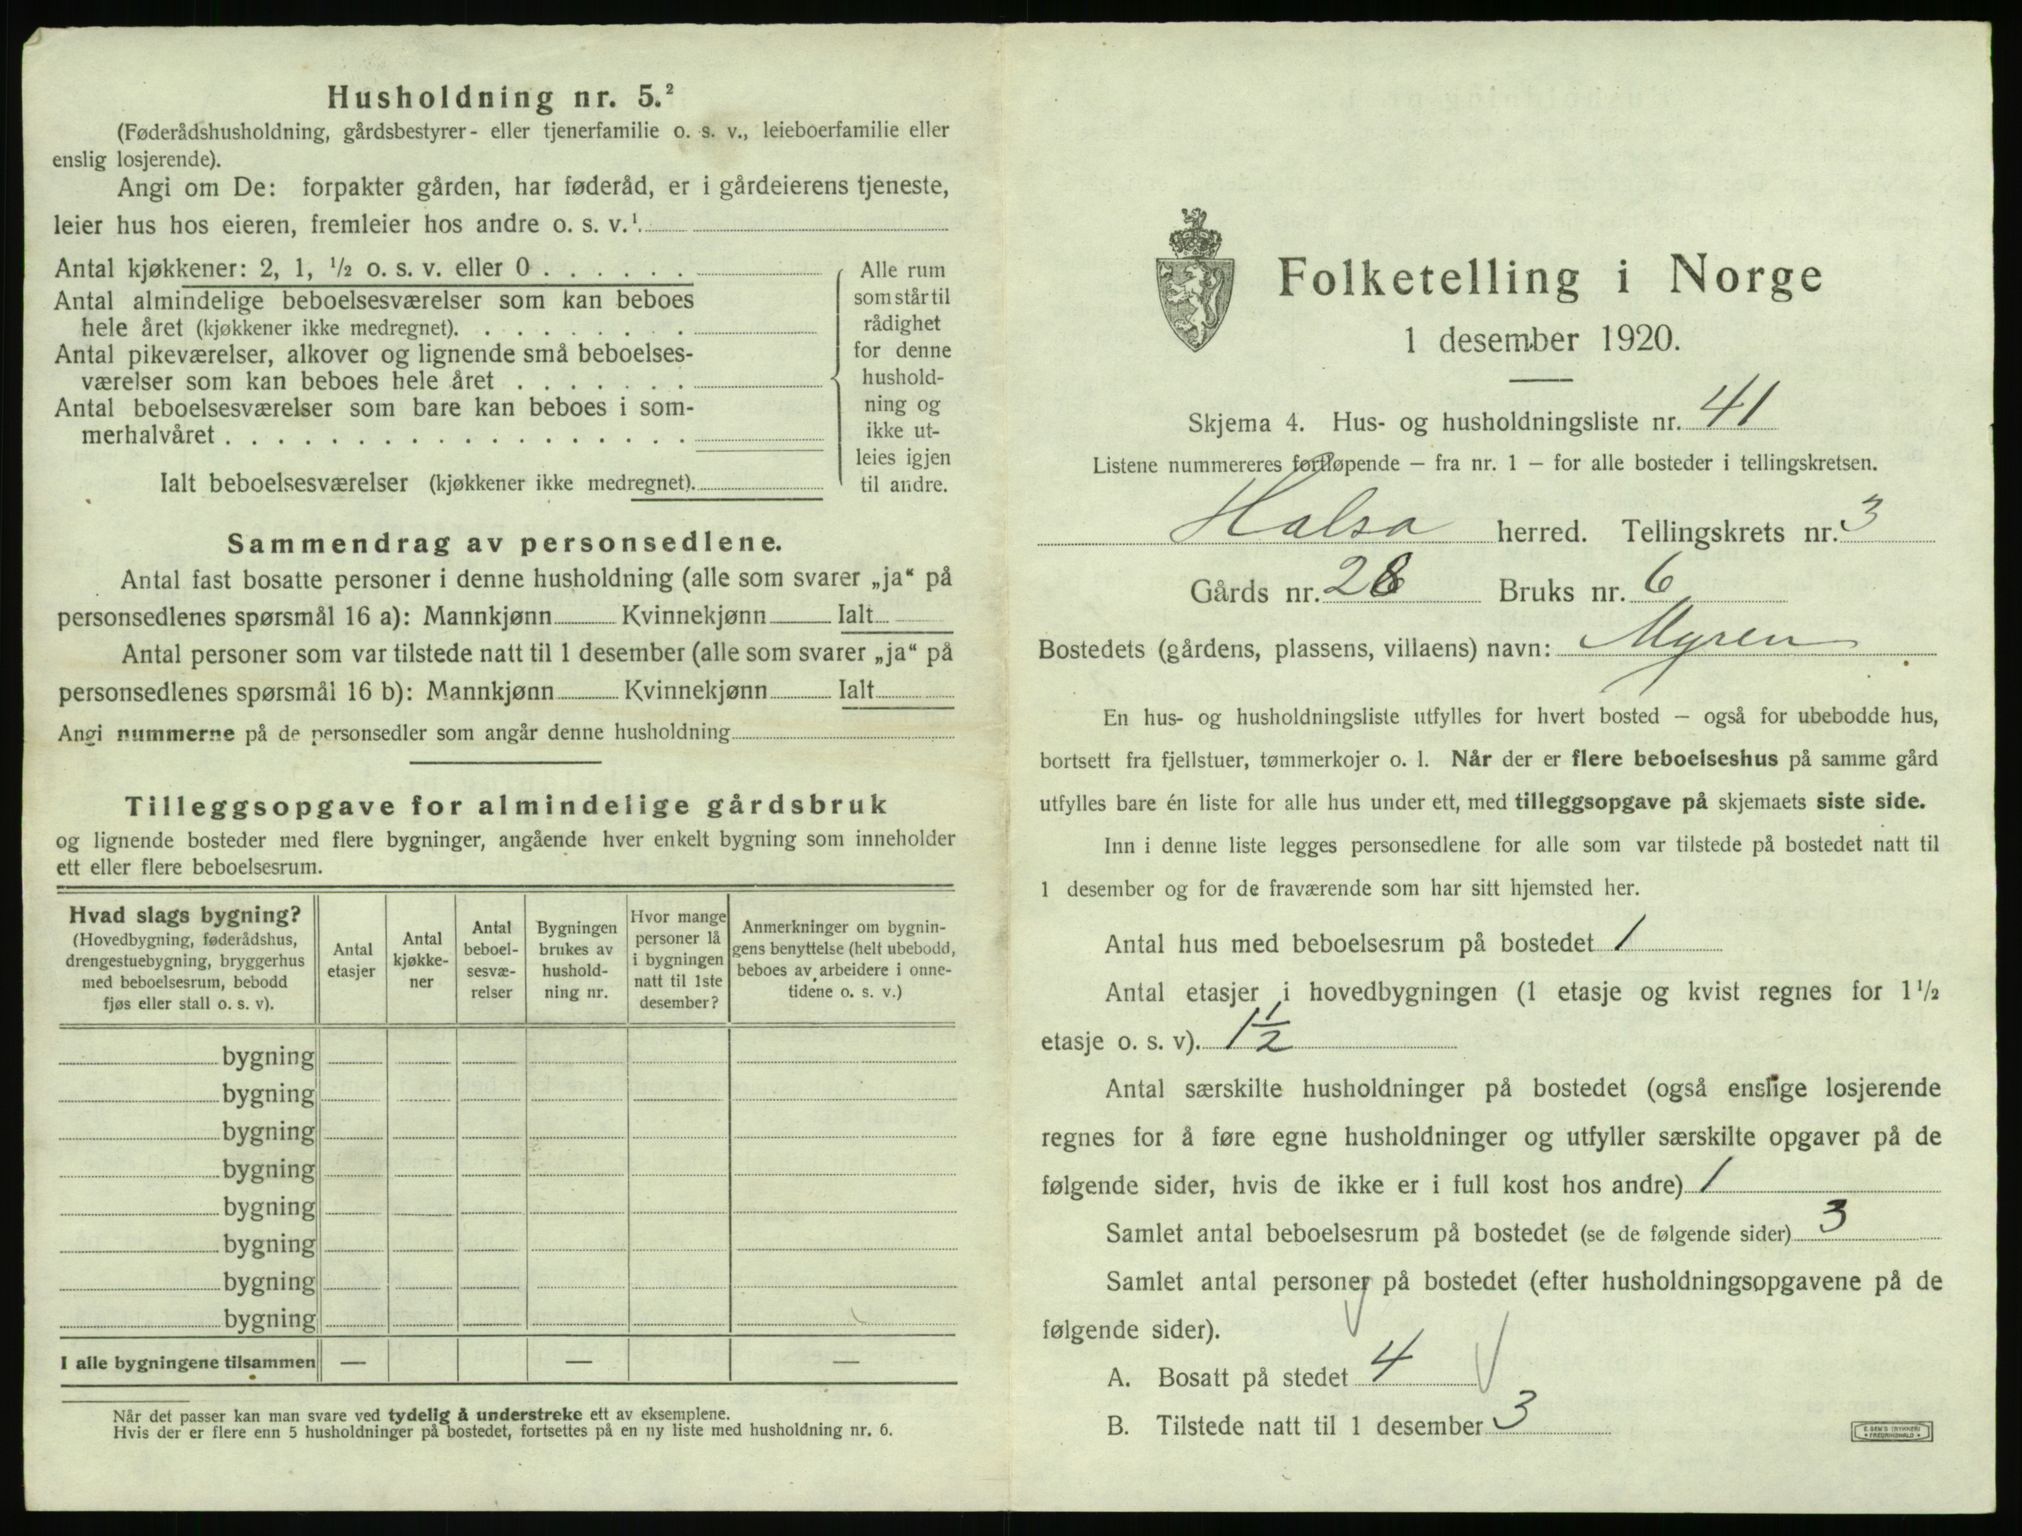 Husholdning nr. 5.²
(Føderådshusholdning, gårdsbestyrer- eller tjenerfamilie o. s. v., leieboerfamilie eller
enslig losjerende).
Angi om De: forpakter gården, har føderåd, er i gårdeierens tjeneste,
leier hus hos eieren, fremleier hos andre o. s. v.¹
Antal kjøkkener: 2, 1, ½ o. s. v. eller 0 . . . . . .
Antal almindelige beboelsesværelser som kan beboes
hele året (kjøkkener ikke medregnet). . . . . . . . .
Antal pikeværelser, alkover og lignende små beboelses-
værelser som kan beboes hele året . . . . . . .
Antal beboelsesværelser som bare kan beboes i som-
merhalvåret . . . . . . . . . . . . . . . . . .
Ialt beboelsesværelser (kjøkkener ikke medregnet).
Alle rum
som står til
rådighet
for denne
hushold-
ning og
ikke ut-
leies igjen
til andre.
Sammendrag av personsedlene.
Antal fast bosatte personer i denne husholdning (alle som svarer „ja“ på
personsedlenes spørsmål 16 a): Mannkjønn Kvinnekjønn Ialt
Antal personer som var tilstede natt til 1 desember (alle som svarer „ja“ på
personsedlenes spørsmål 16 b): Mannkjønn Kvinnekjønn Ialt
Angi nummerne på de personsedler som angår denne husholdning
Tilleggsopgave for almindelige gårdsbruk
og lignende bosteder med flere bygninger, angående hver enkelt bygning som inneholder
ett eller flere beboelsesrum.
Hvad slags bygning?
(Hovedbygning, føderådshus,
drengestuebygning, bryggerhus
med beboelsesrum, bebodd
fjøs eller stall o. s. v).
Antal
etasjer
Antal
kjøkke-
ner
Antal
beboel-
sesvæ-
relser
Bygningen
brukes av
hushold-
ning nr.
Hvor mange
personer lå
i bygningen
natt til 1ste
desember?
Anmerkninger om bygnin-
gens benyttelse (helt ubebodd,
beboes av arbeidere i onne-
tidene o. s. v.)
bygning
bygning
bygning
bygning
bygning
bygning
bygning
bygning
I alle bygningene tilsammen — — —
Når det passer kan man svare ved tydelig å understreke ett av eksemplene.
Hvis der er flere enn 5 husholdninger på bostedet, fortsettes på en ny liste med husholdning nr. 6.
Folketelling i Norge
1 desember 1920.
Skjema 4. Hus- og husholdningsliste nr. 41
Listene nummereres fortløpende – fra nr. 1 – for alle bosteder i tellingskretsen.
Halsa herred. Tellingskrets nr. 3
Gårds nr. 28 Bruks nr. 6
Bostedets (gårdens, plassens, villaens) navn: Myren
En hus- og husholdningsliste utfylles for hvert bosted – også for ubebodde hus,
bortsett fra fjellstuer, tømmerkojer o. l. Når der er flere beboelseshus på samme gård
utfylles bare én liste for alle hus under ett, med tilleggsopgave på skjemaets siste side.
Inn i denne liste legges personsedlene for alle som var tilstede på bostedet natt til
1 desember og for de fraværende som har sitt hjemsted her.
Antal hus med beboelsesrum på bostedet 1
Antal etasjer i hovedbygningen (1 etasje og kvist regnes for 1½
etasje o. s. v). 1½
Antal særskilte husholdninger på bostedet (også enslige losjerende
regnes for å føre egne husholdninger og utfyller særskilte opgaver på de
følgende sider, hvis de ikke er i full kost hos andre) 1
Samlet antal beboelsesrum på bostedet (se de følgende sider) 3
Samlet antal personer på bostedet (efter husholdningsopgavene på de
følgende sider).
A. Bosatt på stedet 4
B. Tilstede natt til 1 desember 3